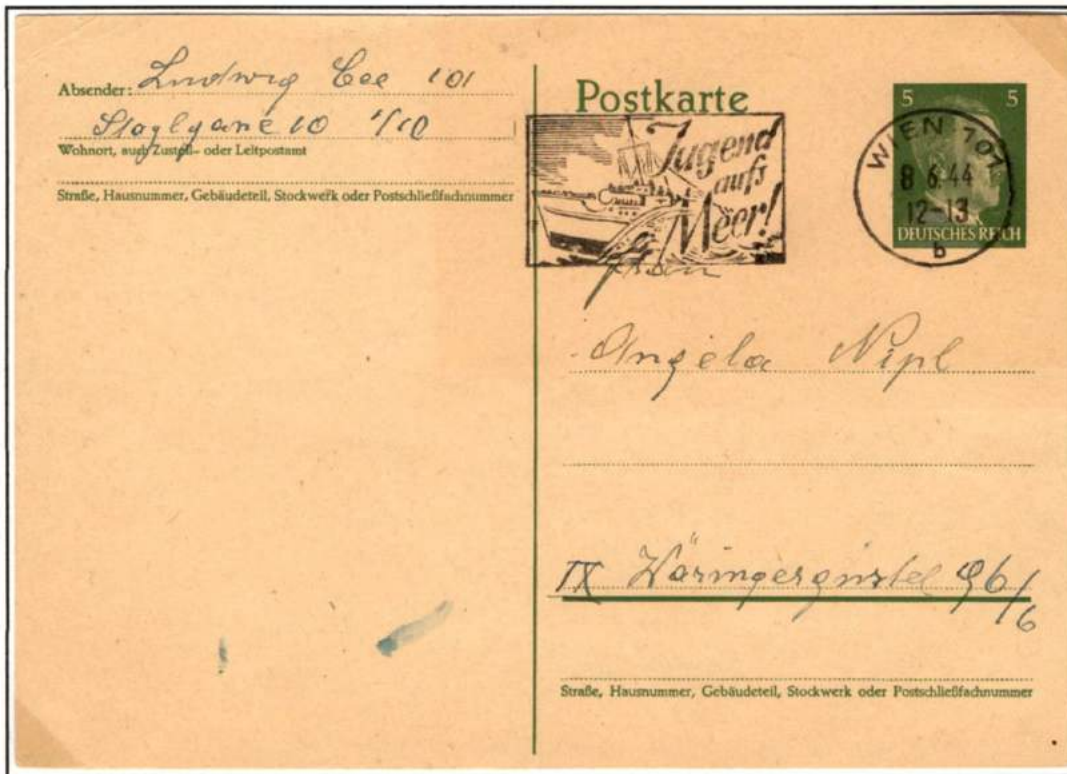 Absender: Ludwig
10 1/10
Wohnort, auch Zustell- oder Leitpostamt
Straße, Hausnummer, Gebäudeteil, Stockwerk oder Postschließfachnummer
Postkarte
Jugend
aufs
Meer!
5 5
WIEN 101
8 6.44
12-13
b
DEUTSCHES REICH
Frau
Angela Nipl
IX Wäringergürtel 96/6
Straße, Hausnummer, Gebäudeteil, Stockwerk oder Postschließfachnummer